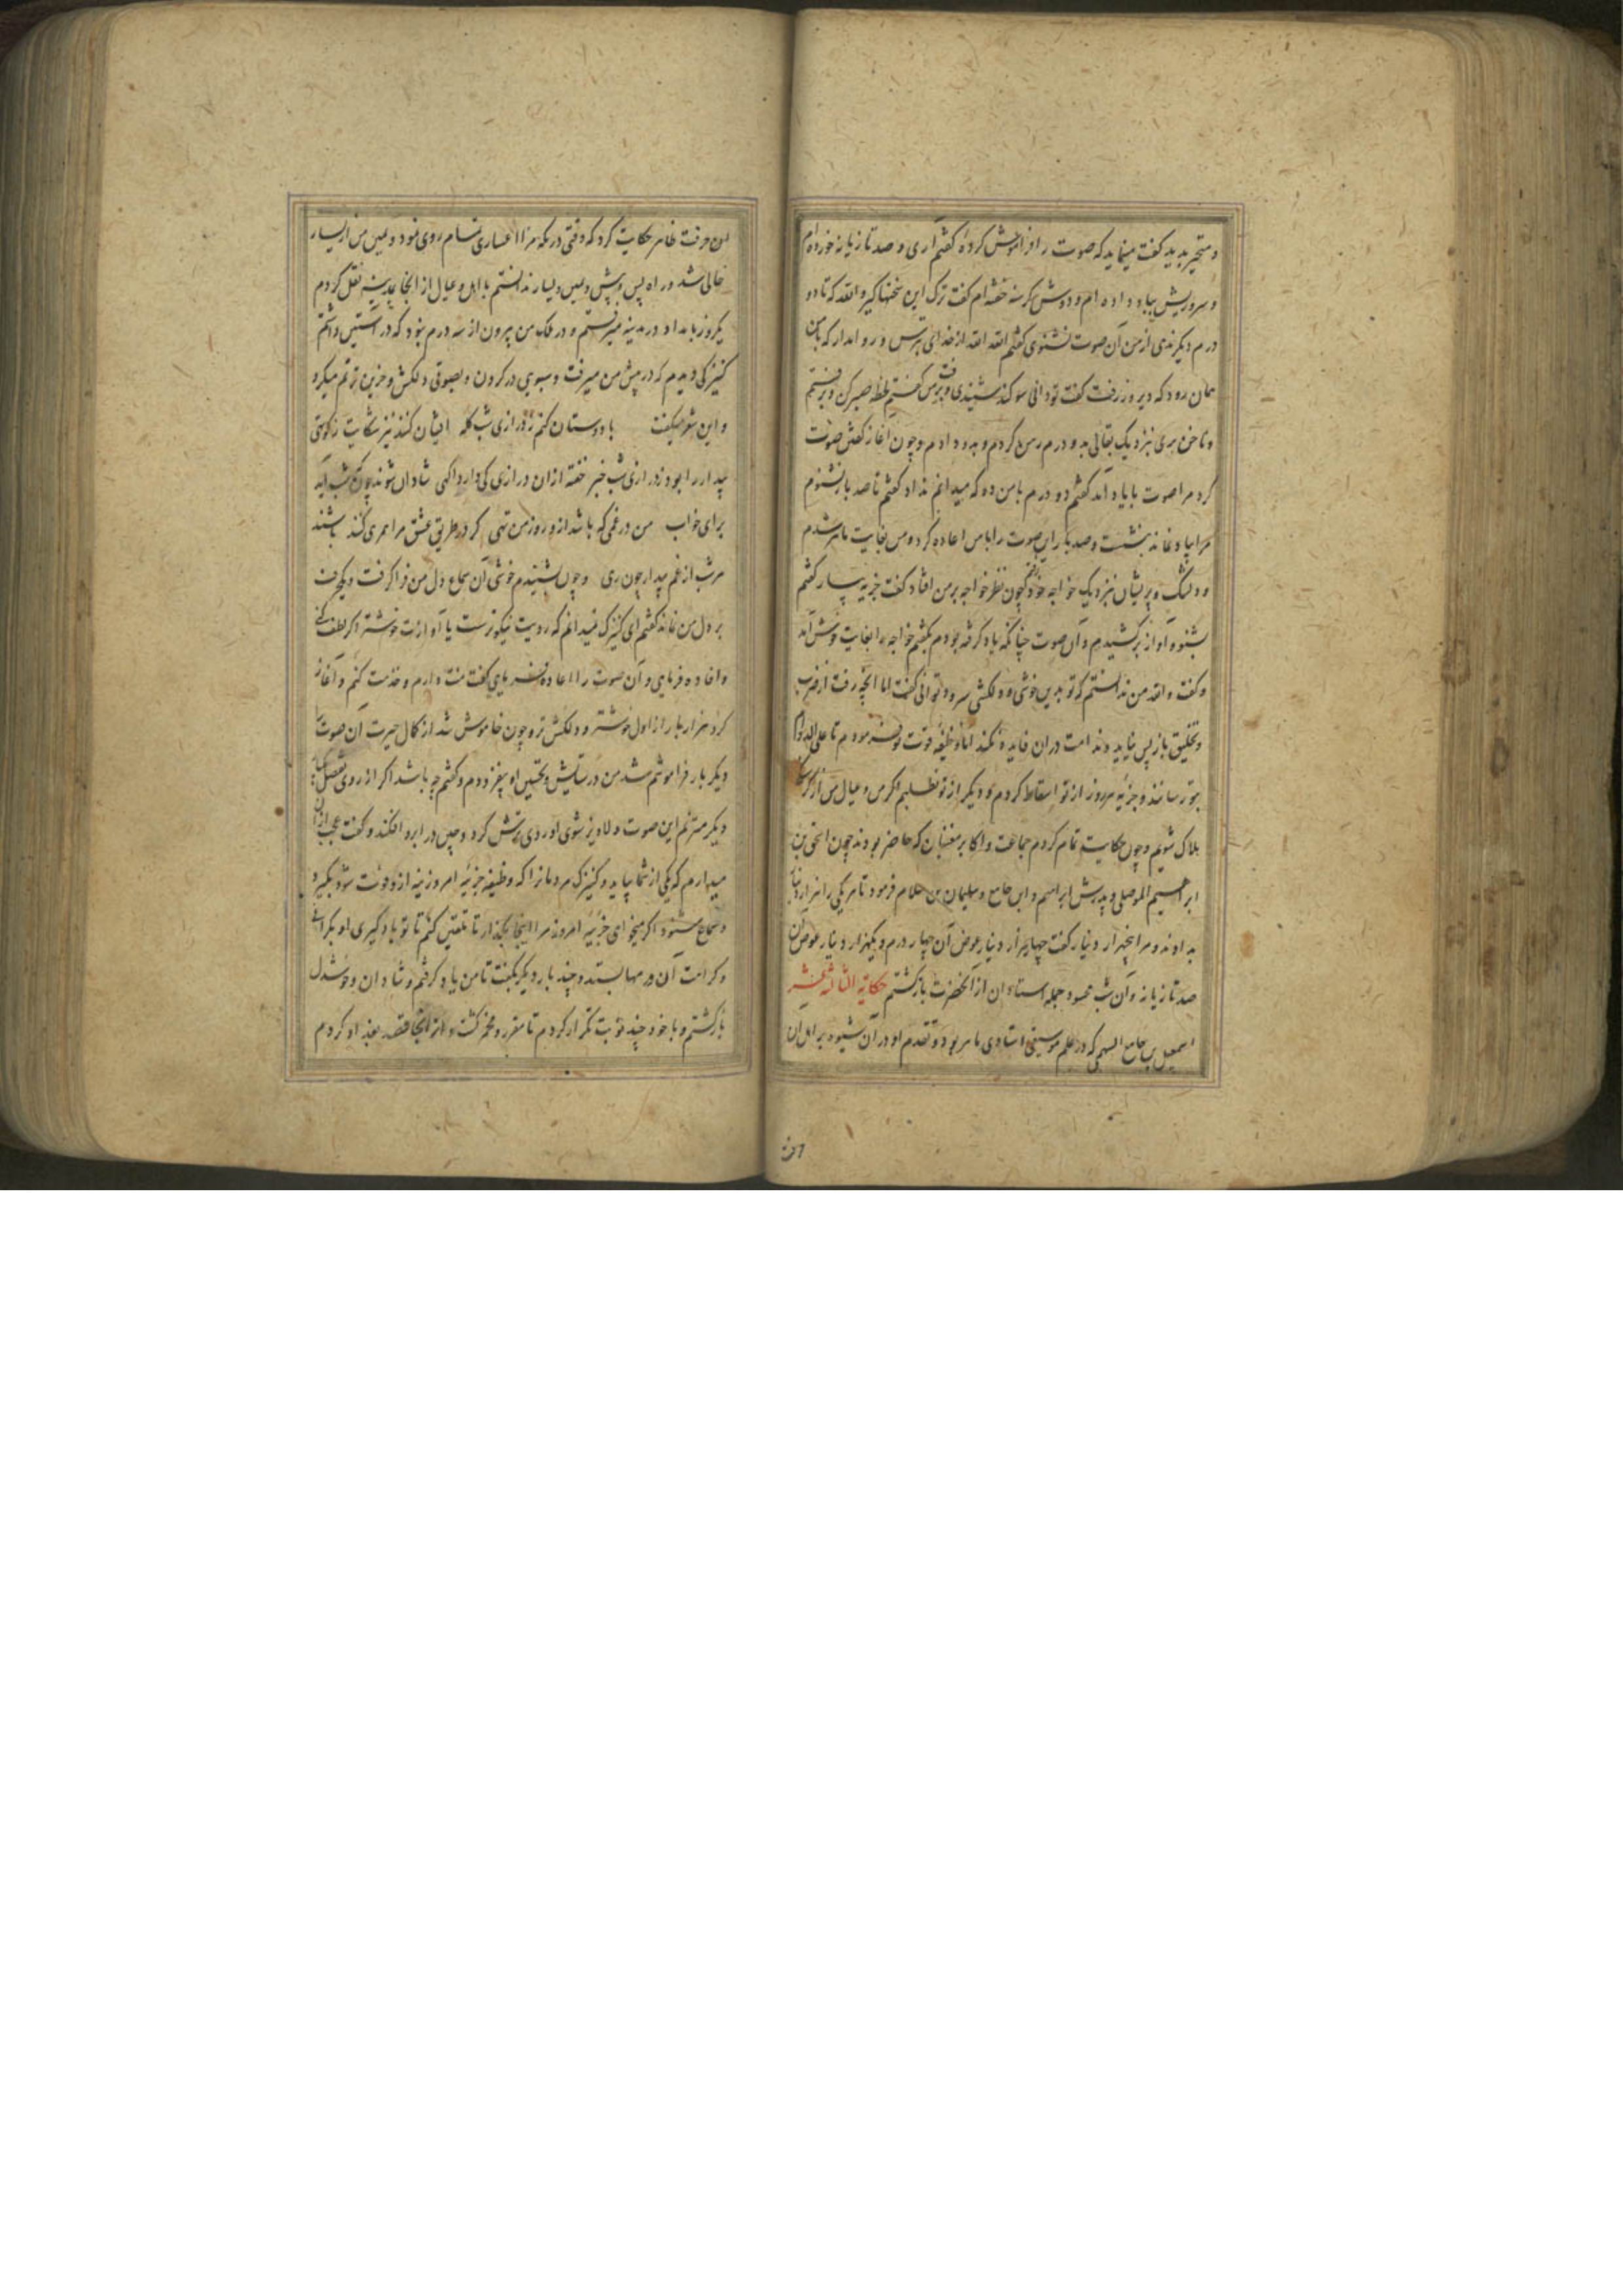 و متحیر بدید گفت مینماید که صوت را فراموش کرده گفتم آری و صد تازیانه خورده‌ام
و سر و ریش بباد داده ام و دوش گرسنه خفته ام گفت ترک این سخنها گیر والله که تا دو
درم دیگر ندی از من آن صوت نشنوی گفتم الله الله از خدای بترس و روا مدار که با من
همان رود که دیروز رفت گفت تو دانی سوگند شنیدی و برفت من گفتم لحظه صبر کن و برفتم
و نزدیک بقالی به دو درم رهن کردم و بدو دادم و چون آغاز گفتن صوت
کرد مرا صوت با یاد آمد گفتم دو درم با من ده که میدانم نداد گفتم تا صد بار نشنوم
مرا یاد نماند بنشست و صد بار این صوت را با من اعاده کرد و من بغایت ماهر شدم
و دلتنگ و پریشان بنزدیک خواجه خود رفتم چون نظر خواجه بر من افتاد گفت جزیه بیار گفتم
بشنو و آواز برکشیدم و آن صوت چنانکه یاد گرفته بودم بگفتم خواجه را بغایت خوش آمد
و گفت والله من ندانستم که تو بدین خوشی و دلکشی سرود توانی گفت اما آنچه رفت از ضرب
و تحلیق باز پس نیاید و ندامت در آن فایده نکند اما وظیفه قوت تو فرمودم تا علی الدوام
بتو رسانند و جزیه هر روز از تو اسقاط کردم و دیگر از تو نطلبم اگر من و عیال من از گرسنگی
هلاک شویم و چون حکایت تمام کردم جماعت و اکابر مغنیان که حاضر بودند چون اسحق بن
ابرهیم الموصلی و پدرش ابراهیم و ابن جامع و سلیمان بن سلام فرمود تا هر یکی را هزار دینار
بدادند و مرا پنجهزار دینار گفت چهار هزار دینار عوض آن چهار درم و یکهزار دینار عوض آن
صد تازیانه و آن شب محسود جمله استادان از آنحضرت بازگشتم حکایة الثالثه عشر
اسمعیل بن جامع السهمی که در علم موسیقی استادی ماهر بود و تقدم او در آن شیوه بر اهل آن
حرفت ظاهر حکایت کرد که وقتی در مکه مرا اعساری تمام روی نمود و یمین من از یسار
خالی شد در راه پس و پیش و یمین و یسار ندانستم با اهل و عیال از انجا بمدینه نقل کردم
یکروز بامداد در مدینه میرفتم و در ملک من بیرون از سه درم نبود که در آستین داشتم
کنیزکی دیدم که در پیش من میرفت و سبویی در گردن و بصوتی دلکش و حزین ترنم میکرد
و این شعر میگفت با دوستان کنم ز درازی شب گله ایشان کنند نیز شکایت ز کوتهی
بیدار را بود ز درازی شب خبر خفته از آن درازی کی دارد آگهی شادان شوند چونکه شب آید
برای خواب من در غمی که باشد از و روز من تهی گر در طریق عشق مرا همرهی کنند باشند
هر شب از غم بیدار چون رهی و چون بشنیدم خوشی آن سماع دل من فرا گرفت و یکحرف
بر دل من نماند گفتم ای کنیزک نمیدانم که رویت نیکوترست یا آوازت خوشتر اگر لطف کنی
و افاده فرمایی و آن صوت را اعاده فرمایی گفت منت دارم و خدمت کنم و آغاز
کرد هزار بار از اول خوشتر و دلکش تر و چون خاموش شد از کمال حیرت آن صوت را
دیگر بار فراموشم شد من در ستایش و تحسین او بیفزودم و گفتم چه باشد اگر از روی تفضل یکبار
دیگر مترنم این صوت دلاویز شوی او روی ترش کرد و چین در ابرو افکند و گفت عجب از آن
میدارم که یکی از شما بیاید و کنیزک مردمانرا که وظیفه جزیه امروزینه ازو فوت شود بگیرد
و سماع شنود اگر میخواهی جزیه امروز مرا اینجا بگذار تا تلقین کنم تا تو یاد گیری او بکراهت
و کرامت آن درمها بستد و چند بار دیگر بگفت تا من یاد گرفتم و شادان و خوشدل
بازگشتم و با خود چند نوبت تکرار کردم تا مقرر و محرز گشت و از انجا قصد بغداد کردم